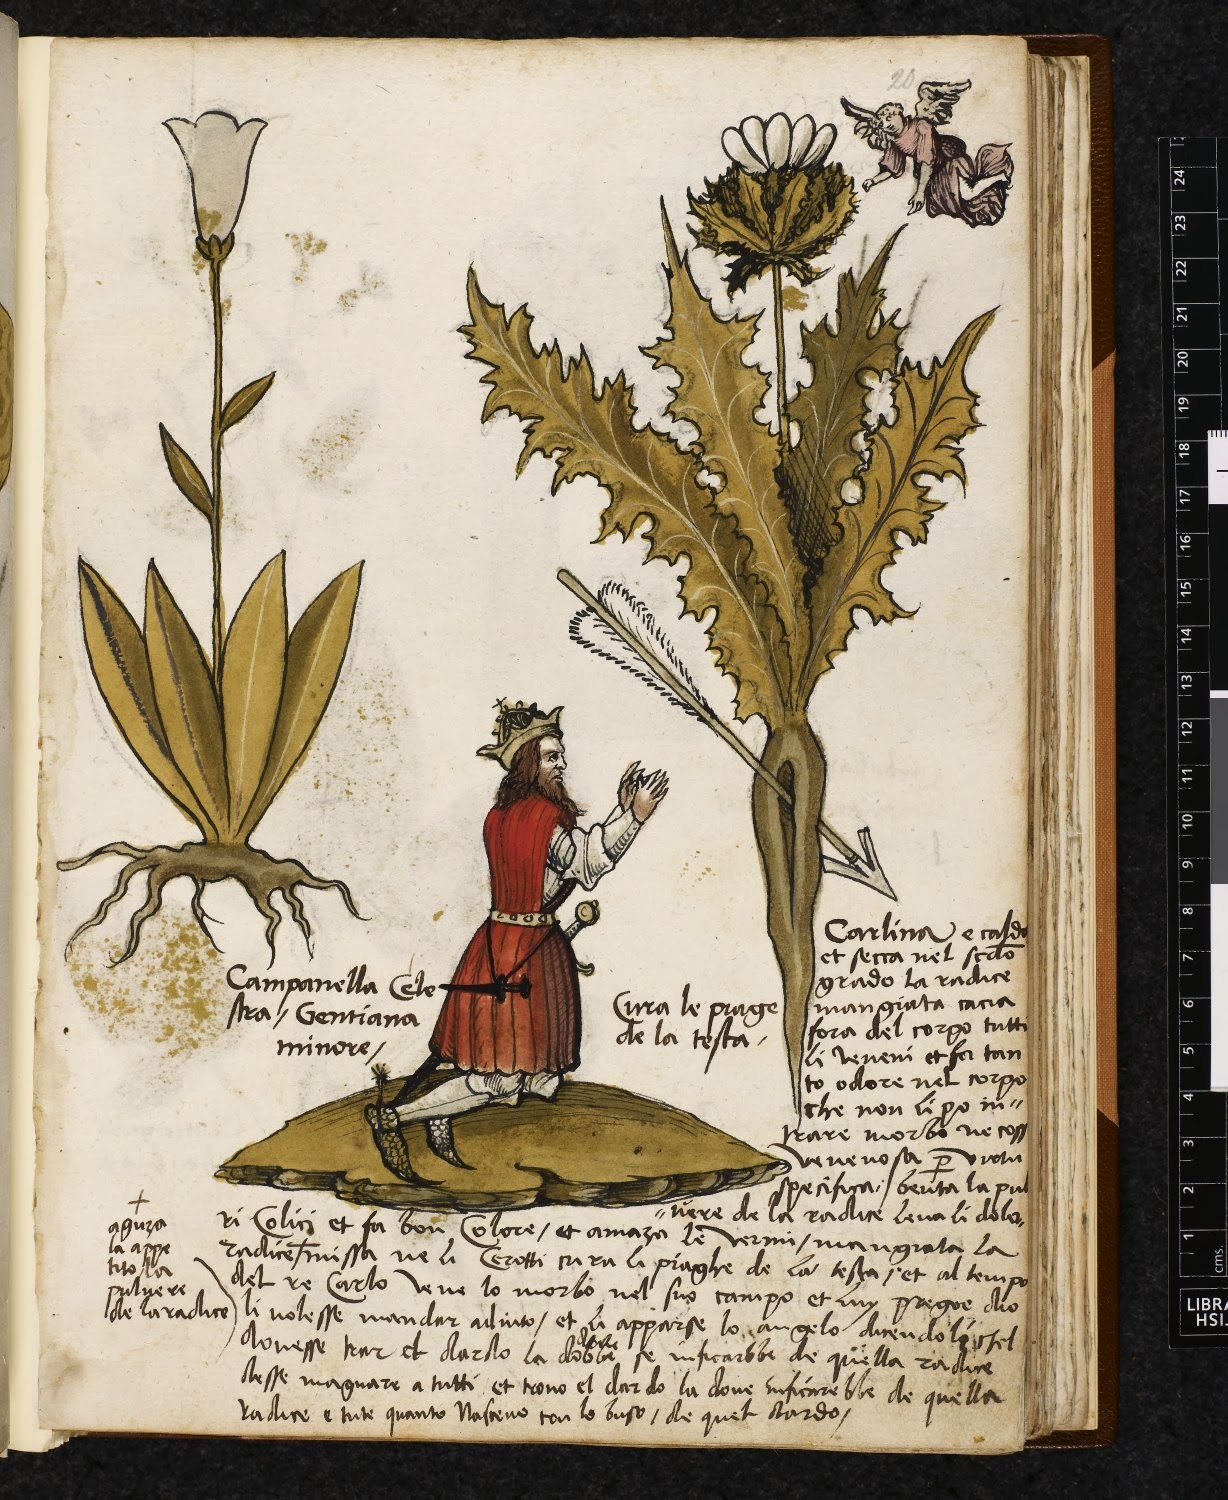 20
Campanella Cele
stra // Gentiana
minore /
Cura le piage
de la testa /
Carlina e calda
et secca nel scdo
grado la radice
mangiata cacia
fora del corpo tutti
li veneni et fa tan
to odore nel corpo
che non li po in //
trare morbo ne coss
venenosa p virtu
specifica / beuta la pul
// uere de la radice leua li dolo,
ri Colici et fa bon Colore / et amaza le vermi / mangiata la
radice + missa ne li Cerotti cura li piaghe de la testa / et al tempo
del re Carlo vene lo morbo nel suo campo et luy pregoe dio
li volesse mandar adiuto / et li apparse lo angelo dicendoli chel
douesse trar el dardo la doue se ficarebbe de quella radice
desse magnare a tutti et trouo el dardo la doue ficarebbe de quella
radice e tute quante Nasceno con lo buso / de quel dardo /
+
aguza
la appe
tito la
puluere
de la radice
24
23
22
21
20
19
18
17
16
15
14
13
12
11
10
9
8
7
6
5
4
3
2
1
cms.
LIBRA
HSI.